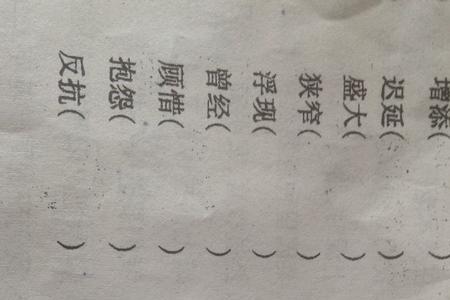 增添(    )
迟延(    )
盛大(    )
狭窄(    )
浮现(    )
曾经(    )
顾惜(    )
抱怨(    )
反抗(    )